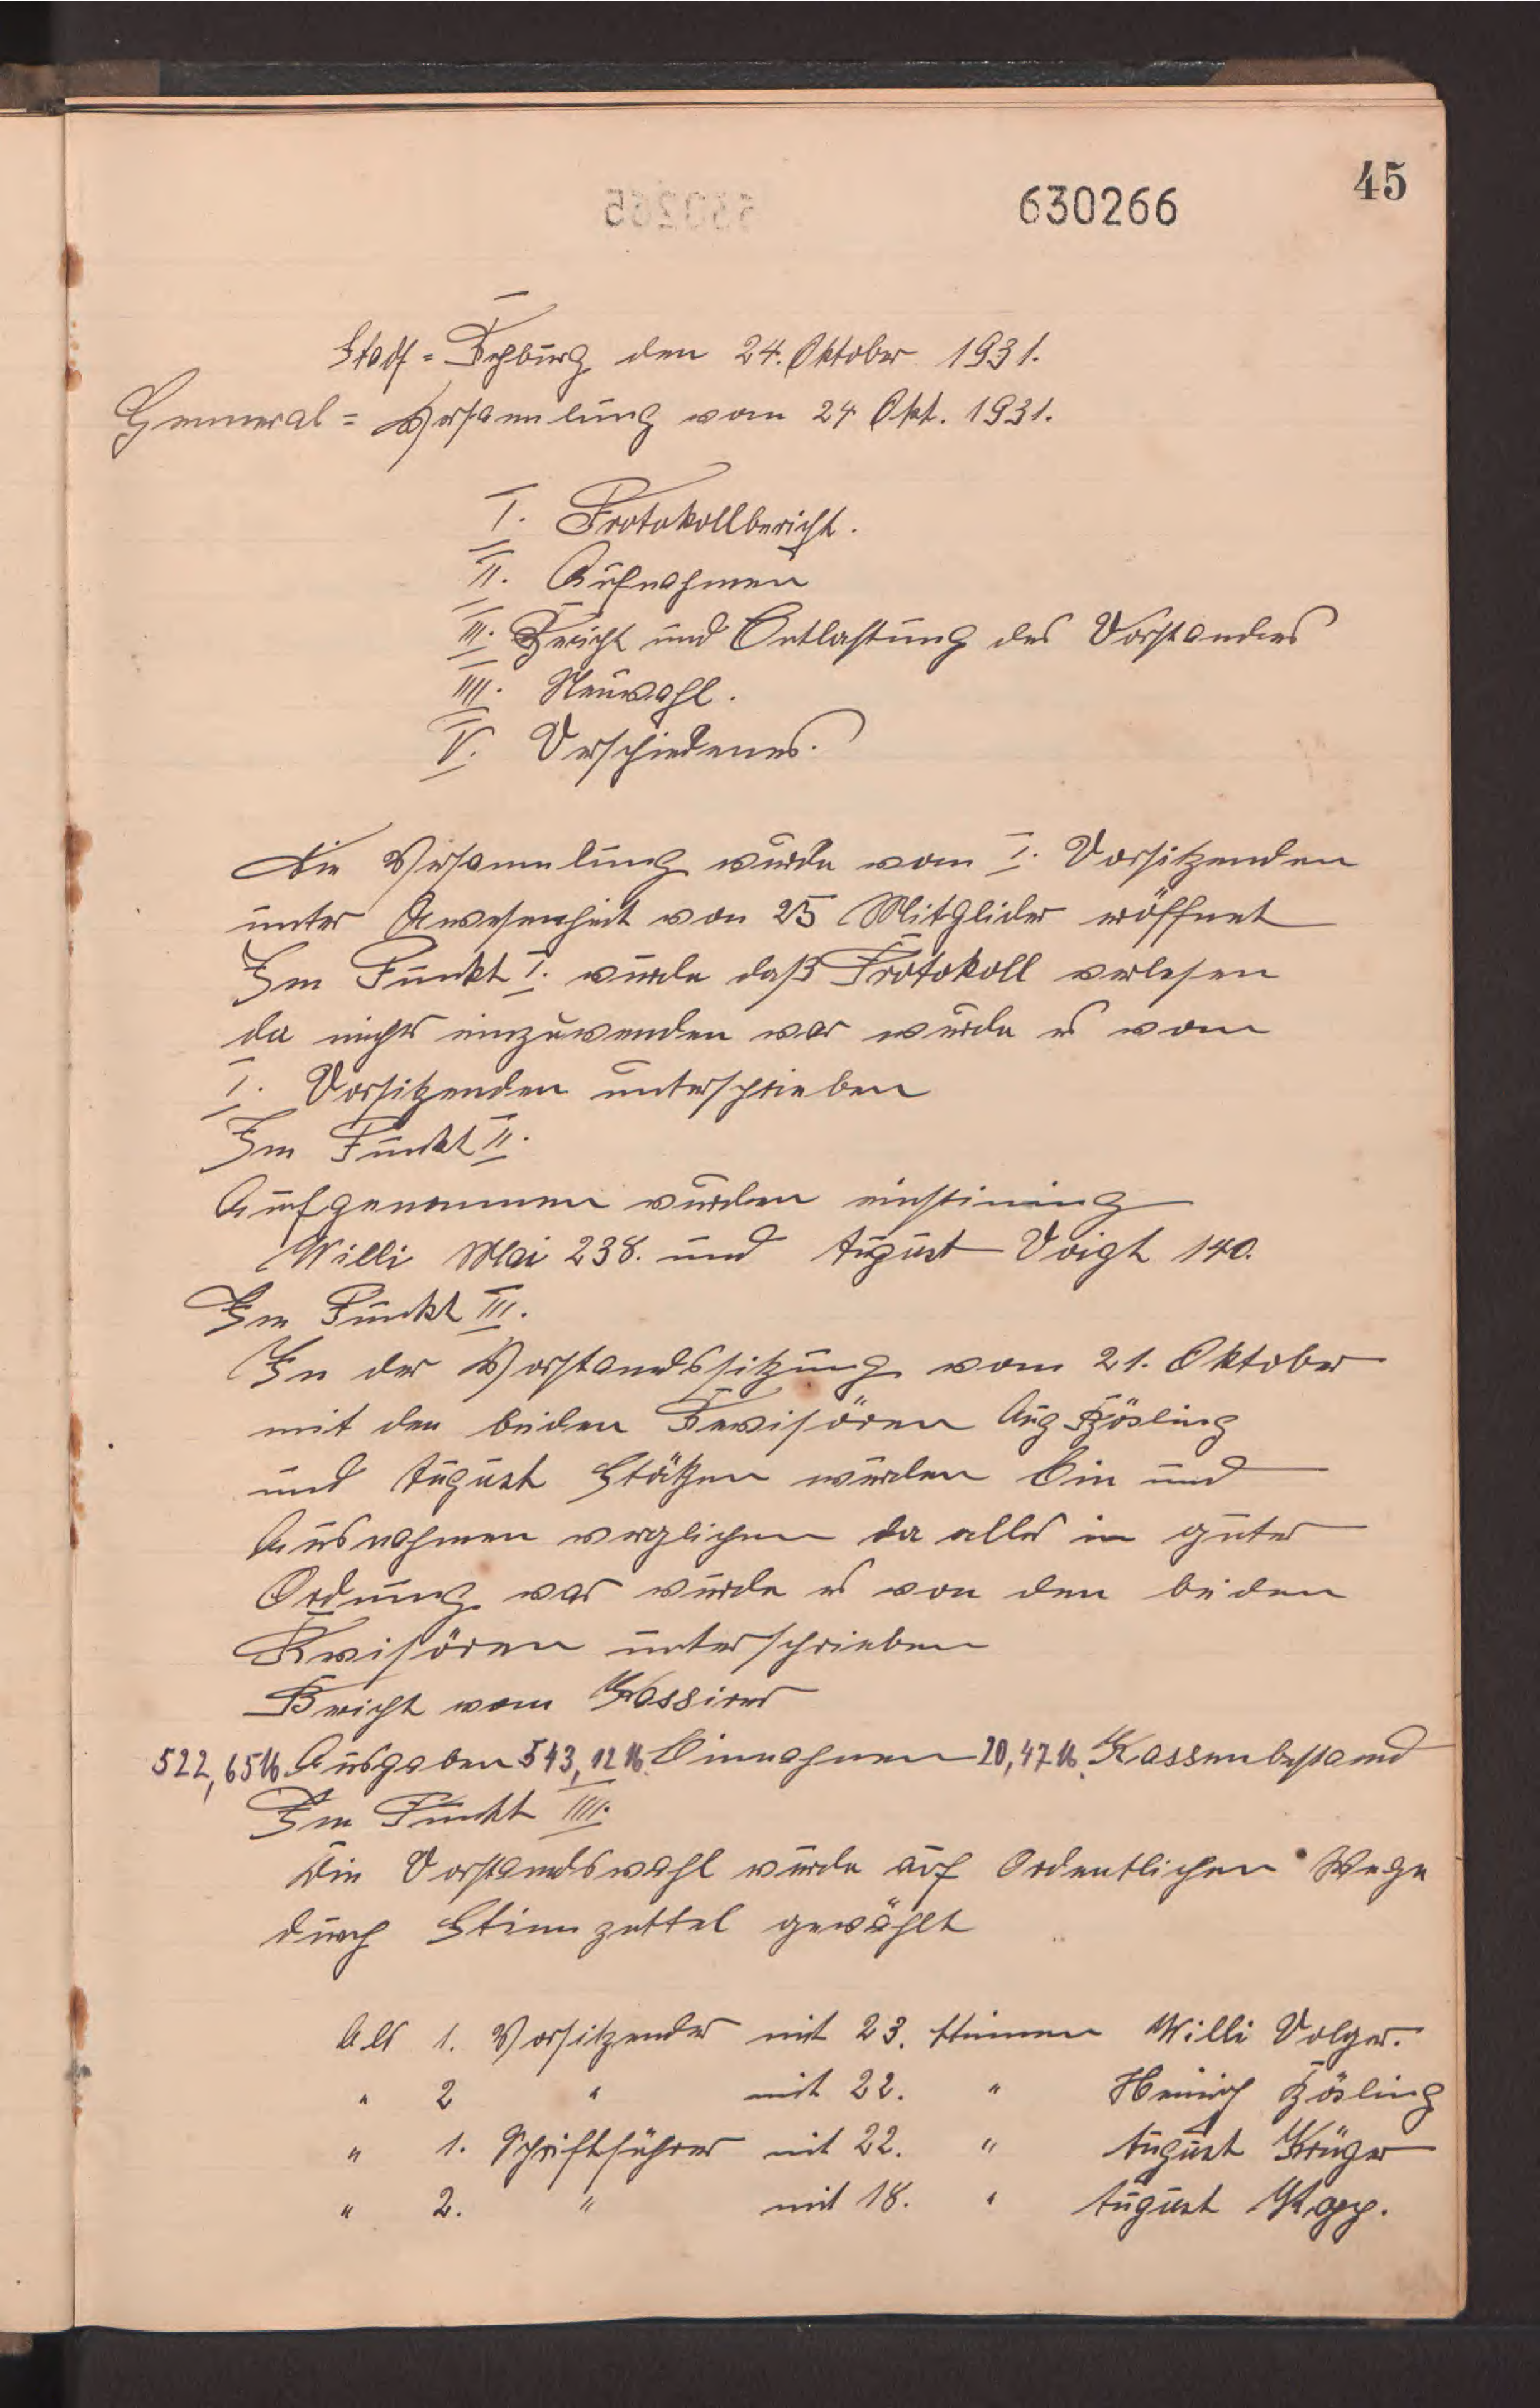 45
630266
Stadt-Rehburg, den 24. Oktober 1931.
Genneral = Versamlung vom 24 Okt. 1931.
I. Protokollbericht.
II. Aufnahmen
III. Bericht und Entlastung des Vorstandes
IIII. Neuwahl.
V. Verschiedenes.
Die Versammlung wurde vom I. Vorsitzenden
unter Anwesenheit von 25 Mitglider eröffnet
Im Punkt I. wurde daß Protokoll verlesen
da nichts einzuwenden war wurde es vom
I. Vorsitzenden unterschrieben
Im Punkt II.
Aufgenommen wurden einstiming
Willi Mai 238. und August Voigt 140.
Im Punkt III.
In der Vorstandssitzung vom 21. Oktober
mit den beiden Revisören Aug Bösling
und August wurden Ein und
Ausnahmen verglichen da alles in guter
Ordnung war wurde es von den beiden
Revisören unterschrieben
Bericht vom Kassierer
522,65 M Ausgaben 543,12 M. Einnahmen 20,47 M. Kassenbestand
Im Punkt IIII.
Die Vorstandswahl wurde auf Ordentlichen Wege
durch Stimzettel gewählt
Als 1. Vorsitzender mit 23. Stimmen Willi Volger.
" 2 " mit 22. " Heinrich Bösling
" 1. Schriftführer mit 22. " August Krüger
" 2. " mit 18. " August Kopp.